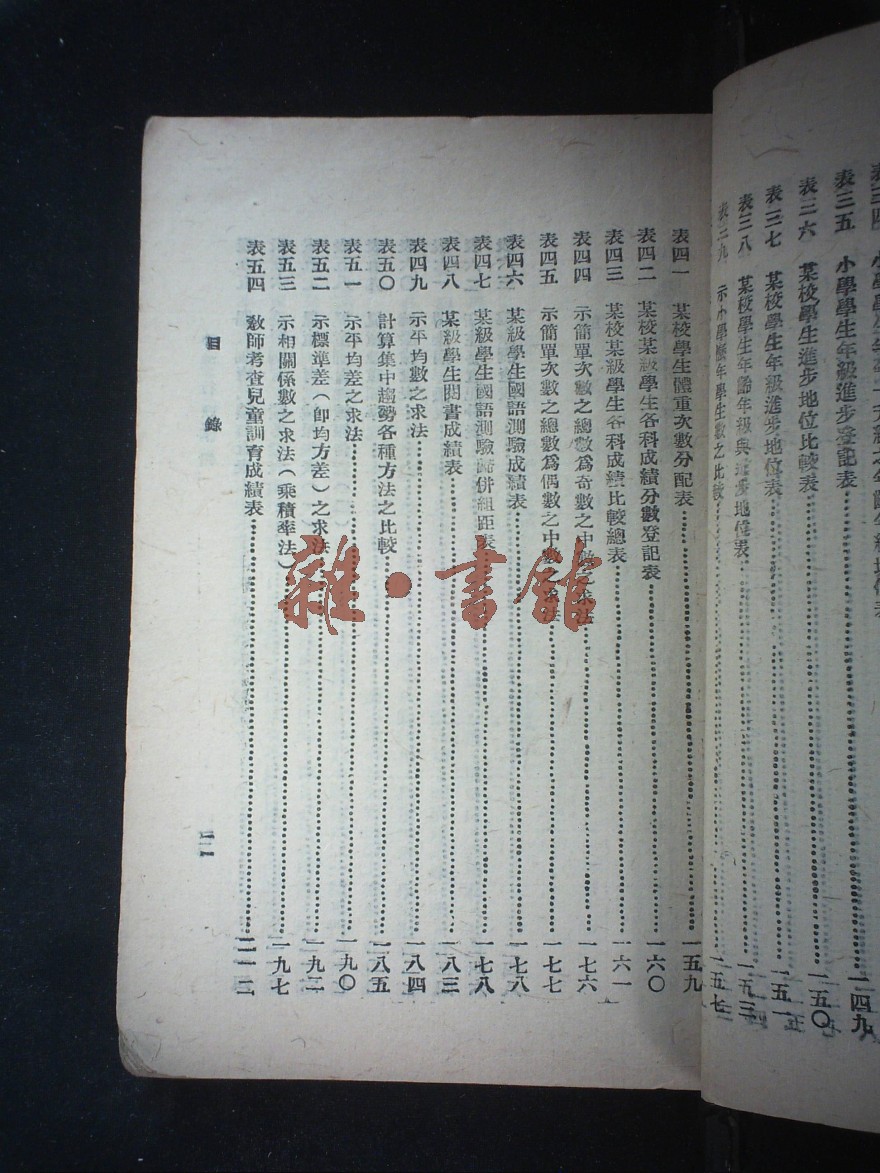 小學學生年級進步登記表 表三五 一四九
表三六 某校學生進步地位比較表 一五〇
表三七 某校學生年級進步地位表 一五一
表三八 某校學生年齡年級與進步地位表 一五三
表三九 示小學歷年學生數之比較 一五七
表四一 某校學生體重次數分配表 一五九
表四二 某校某級學生各科成績分數登記表 一六〇
表四三 某校某級學生各科成績比較總表 一六一
表四四 示簡單次數之總數爲奇數之中數之求法 一七六
表四五 示簡單次數之總數爲偶數之中數之求法 一七七
表四六 某級學生國語測驗成績表 一七八
表四七 某級學生國語測驗歸併組距表 一七八
表四八 某級學生閱書成績表 一八三
表四九 示平均數之求法 一八四
表五〇 計算集中趨勢各種方法之比較 一八五
表五一 示平均差之求法 一九〇
表五二 示標準差(即均方差)之求法 一九二
表五三 示相關係數之求法(乘積率法) 一九七
表五四 教師考查兒童訓育成績表 二一二
目錄
雜·書館